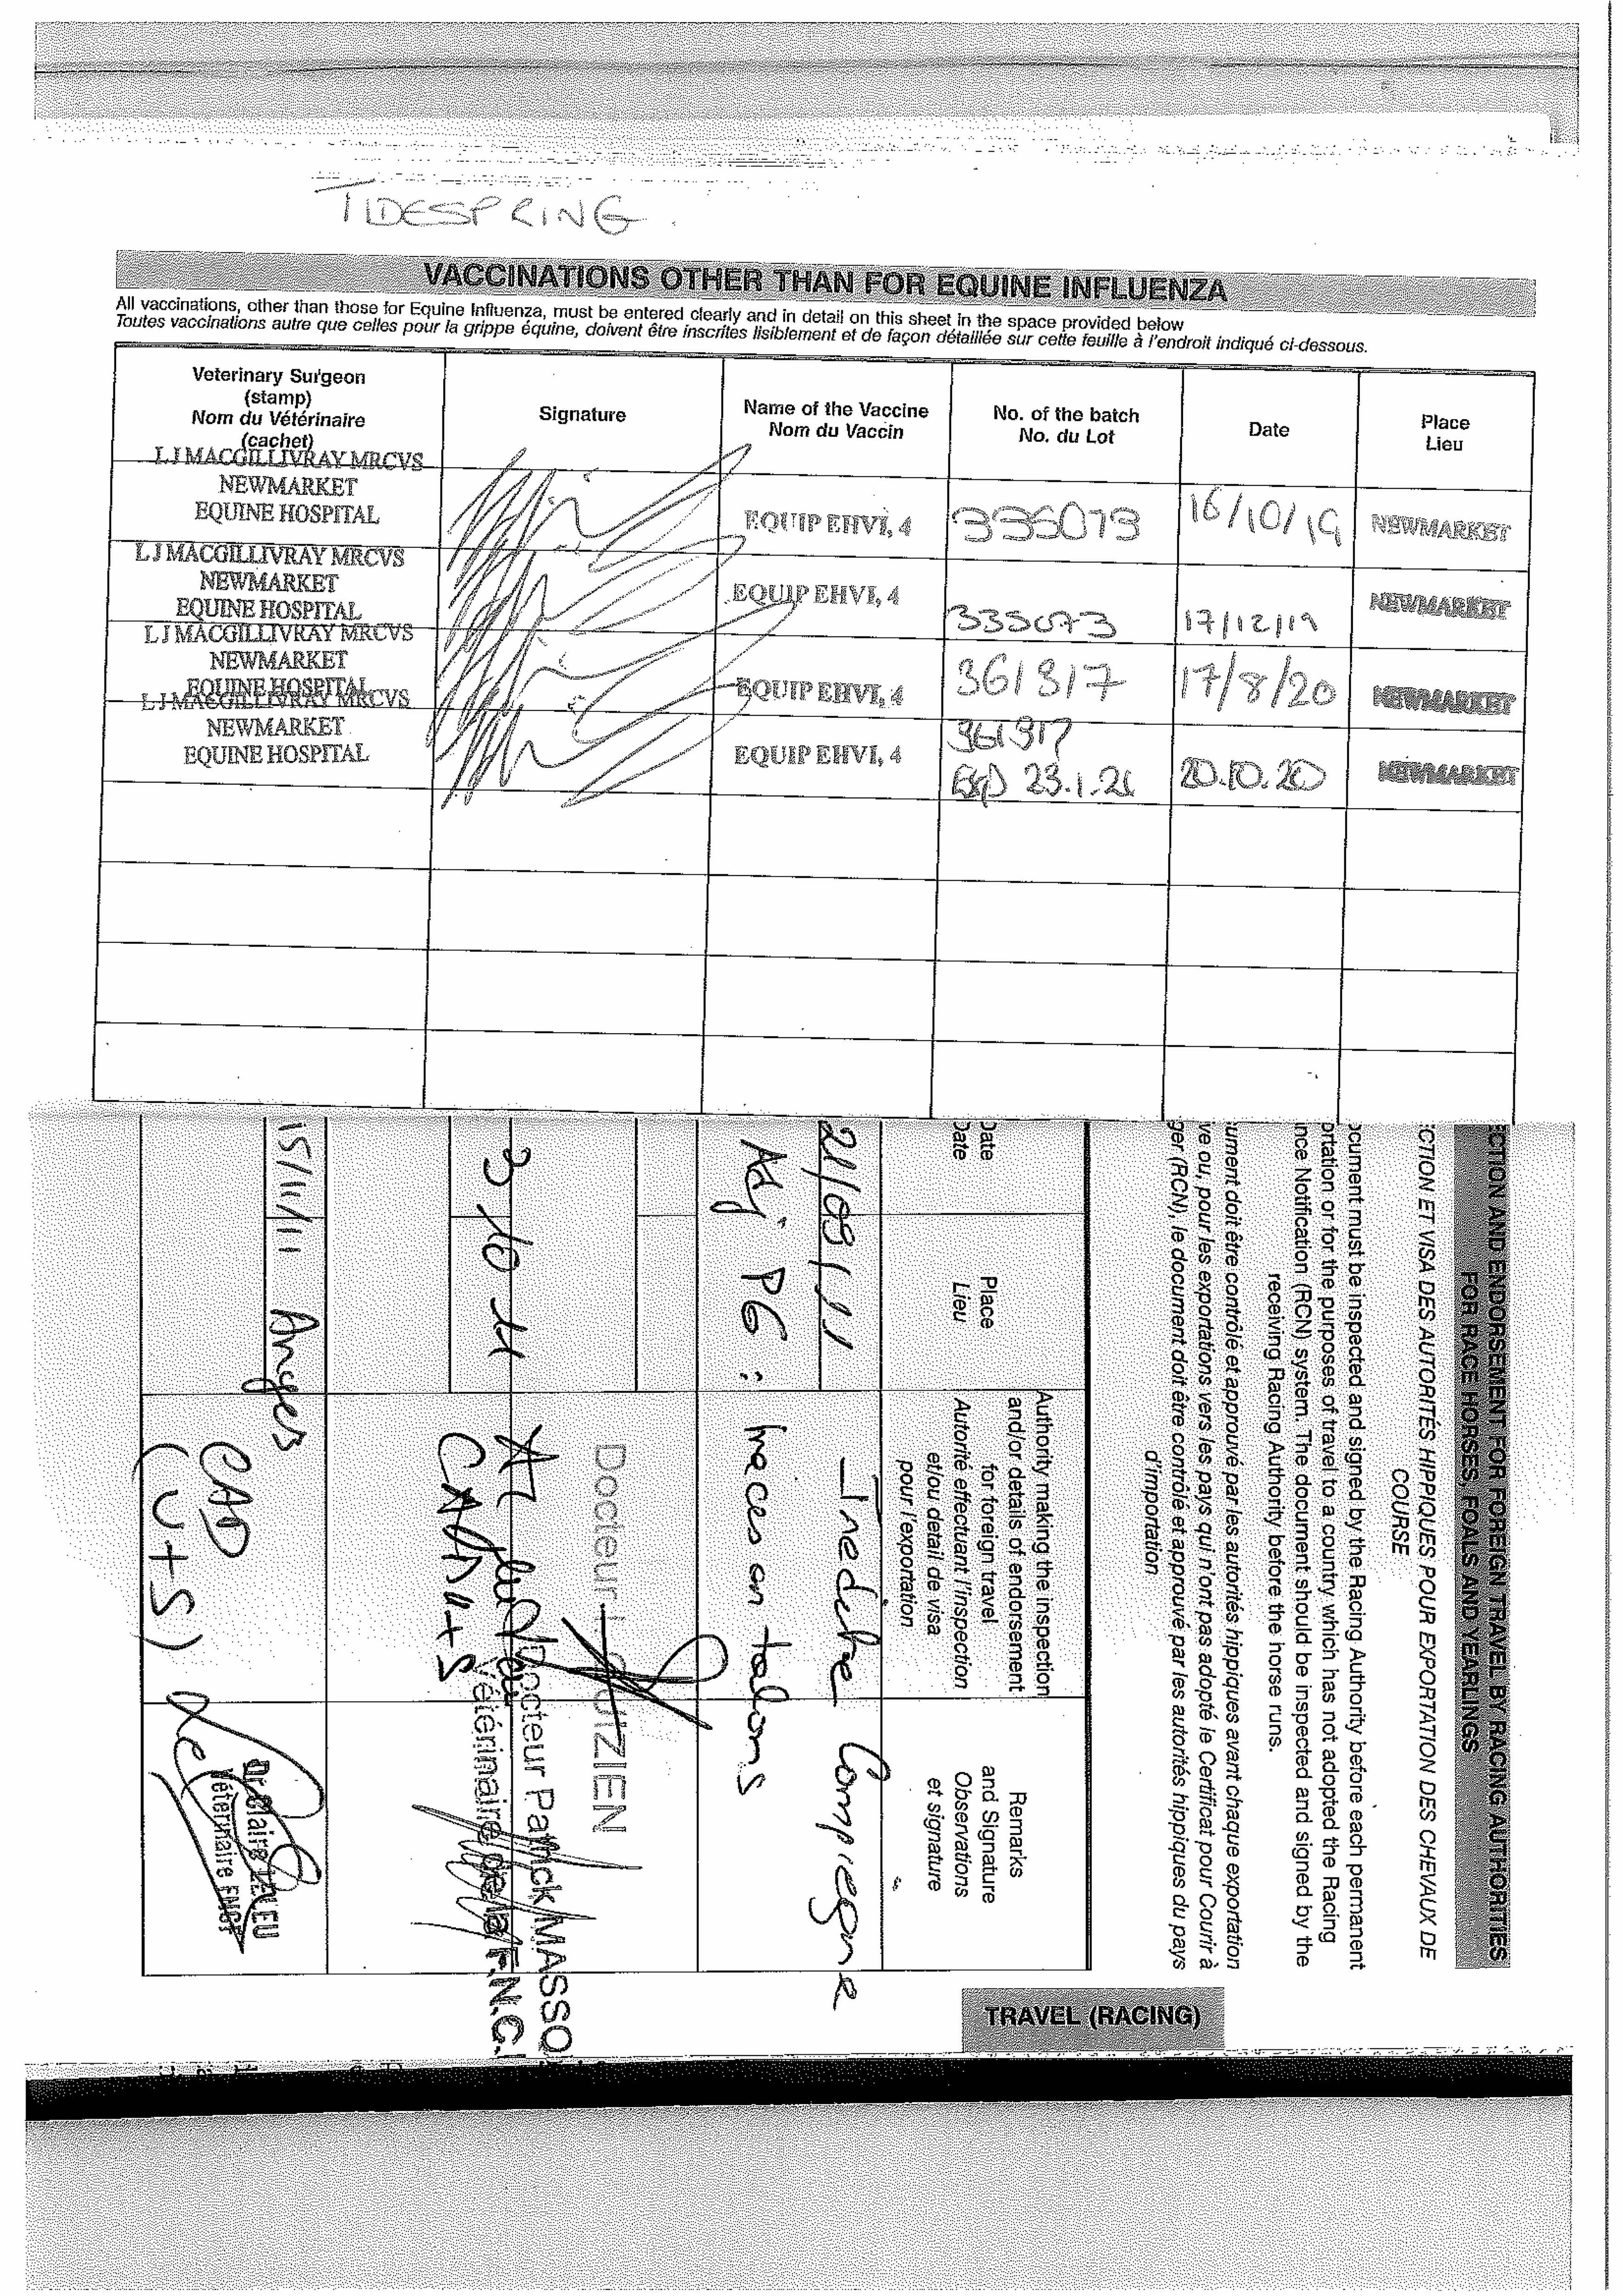 TIDESPRING.
VACCINATIONS OTHER THAN FOR EQUINE INFLUENZA
All vaccinations, other than those for Equine Influenza, must be entered clearly and in detail on this sheet in the space provided below
Toutes vaccinations autre que celles pour la grippe équine, doivent être inscrites lisiblement et de façon détaillée sur cette feuille à l'endroit indiqué ci-dessous.
Veterinary Surgeon
(stamp)
Nom du Vétérinaire
(cachet)
Signature
Name of the Vaccine
Nom du Vaccin
No. of the batch
No. du Lot
Date
Place
Lieu
L J MACGILLIVRAY MRCVS
NEWMARKET
EQUINE HOSPITAL
EQUIP EHVI, 4
335073
16/10/19
NEWMARKET
L J MACGILLIVRAY MRCVS
NEWMARKET
EQUINE HOSPITAL
EQUIP EHVI, 4
335073
17/12/19
NEWMARKET
L J MACGILLIVRAY MRCVS
NEWMARKET
EQUINE HOSPITAL
EQUIP EHVI, 4
361317
17/8/20
NEWMARKET
L J MACGILLIVRAY MRCVS
NEWMARKET
EQUINE HOSPITAL
EQUIP EHVI, 4
361317
Exp 23.1.21
20.10.20
NEWMARKET
ECTION AND ENDORSEMENT FOR FOREIGN TRAVEL BY RACING AUTHORITIES
FOR RACE HORSES, FOALS AND YEARLINGS
CTION ET VISA DES AUTORITÉS HIPPIQUES POUR EXPORTATION DES CHEVAUX DE
COURSE
ocument must be inspected and signed by the Racing Authority before each permanent
ortation or for the purposes of travel to a country which has not adopted the Racing
nce Notification (RCN) system. The document should be inspected and signed by the
receiving Racing Authority before the horse runs.
ument doit être contrôlé et approuvé par les autorités hippiques avant chaque exportation
ve ou, pour les exportations vers les pays qui n'ont pas adopté le Certificat pour Courir à
ger (RCN), le document doit être contrôlé et approuvé par les autorités hippiques du pays
d'importation
Date
Date
Place
Lieu
Authority making the inspection
and/or details of endorsement
for foreign travel
Autorité effectuant l'inspection
et/ou detail de visa
pour l'exportation
Remarks
and Signature
Observations
et signature
21/09/11
Compiegne
Aj° PG : traces on talons
Docteur
3/10 11
CABDA+S
Docteur Patrick MASSO
Vétérinaire de la F.N.C.
15/11/11 Angers
CAD
(U+S)
Dr Claire LELEU
Vétérinaire FNCF
TRAVEL (RACING)